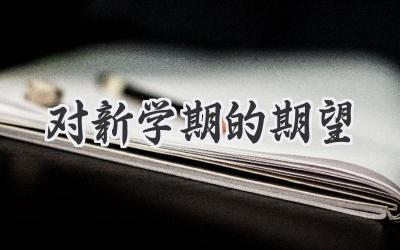 对新学期的期望